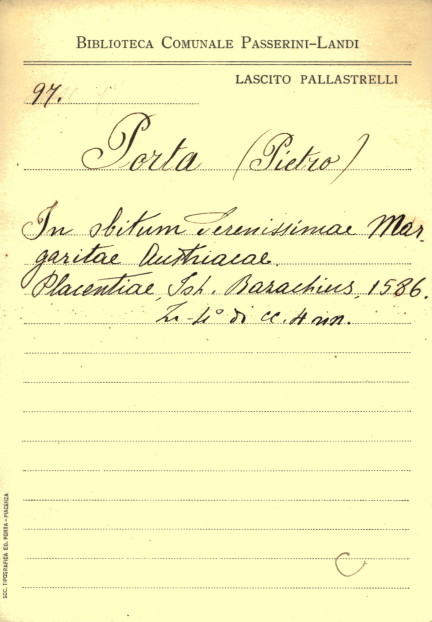 BIBLIOTECA COMUNALE PASSERINI-LANDI
LASCITO PALLASTRELLI
97.
Porta (Pietro)
In obitum Serenissimae Mar-
garitae Austriacae.
Placentiae, Joh. Bazachius, 1586.
In-4° di cc. 4 nn.
C
SOC. TIPOGRAFICA ED. PORTA-PIACENZA